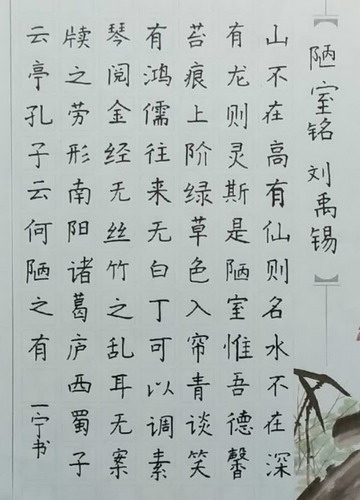 【陋室铭 刘禹锡】
山不在高有仙则名水不在深
有龙则灵斯是陋室惟吾德馨
苔痕上阶绿草色入帘青谈笑
有鸿儒往来无白丁可以调素
琴阅金经无丝竹之乱耳无案
牍之劳形南阳诸葛庐西蜀子
云亭孔子云何陋之有 一宁书